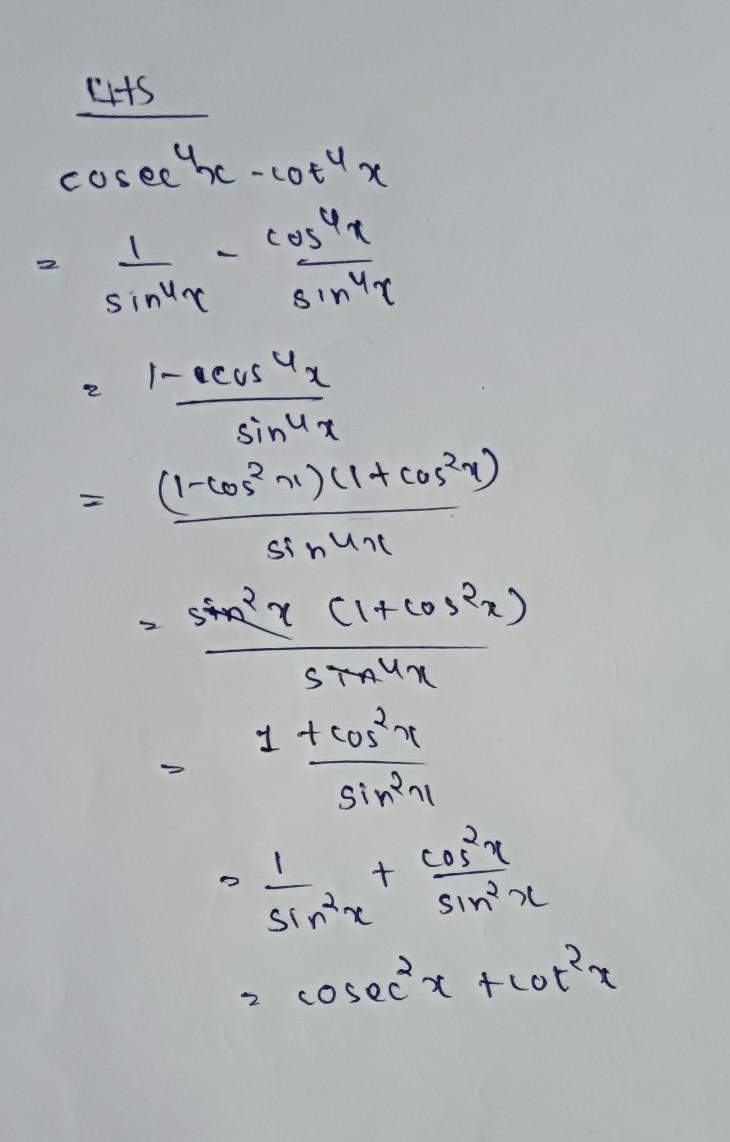 LHS
cosec⁴x - cot⁴x
= 1/sin⁴x - cos⁴x/sin⁴x
= 1-cos⁴x/sin⁴x
= (1-cos²x)(1+cos²x)/sin⁴x
= sin²x (1+cos²x)/sin⁴x
= 1+cos²x/sin²x
= 1/sin²x + cos²x/sin²x
= cosec²x + cot²x